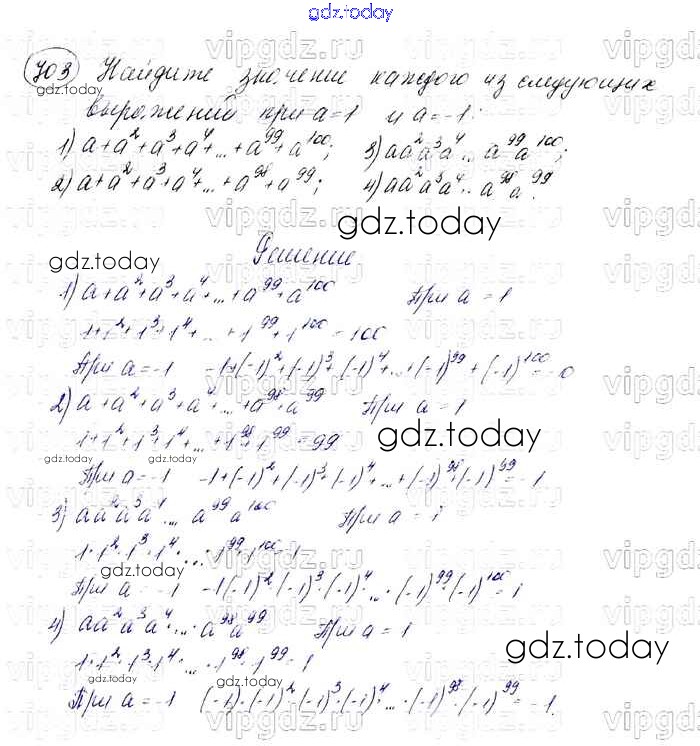 gdz.today
703 Найдите значение каждого из следующих
выражений при a=1 и a=-1:
1) a+a²+a³+a⁴+...+a⁹⁹+a¹⁰⁰; 3) aa²a³a⁴...a⁹⁹a¹⁰⁰;
2) a+a²+a³+a⁴+...+a⁹⁸+a⁹⁹; 4) aa²a³a⁴...a⁹⁸a⁹⁹.
Решение
1) a+a²+a³+a⁴+...+a⁹⁹+a¹⁰⁰ При a=1
1+1²+1³+1⁴+...+1⁹⁹+1¹⁰⁰=100
При a=-1 -1+(-1)²+(-1)³+(-1)⁴+...+(-1)⁹⁹+(-1)¹⁰⁰=0
2) a+a²+a³+a⁴+...+a⁹⁸+a⁹⁹ При a=1
1+1²+1³+1⁴+...+1⁹⁸+1⁹⁹=99
При a=-1 -1+(-1)²+(-1)³+(-1)⁴+...+(-1)⁹⁸+(-1)⁹⁹=-1
3) aa²a³a⁴...a⁹⁹a¹⁰⁰ При a=1
1·1²·1³·1⁴·...·1⁹⁹·1¹⁰⁰=1
При a=-1 -1(-1)²·(-1)³·(-1)⁴·...·(-1)⁹⁹·(-1)¹⁰⁰=1
4) aa²a³a⁴·...·a⁹⁸a⁹⁹ При a=1
1·1²·1³·1⁴·...·1⁹⁸·1⁹⁹=1
При a=-1 (-1)·(-1)²·(-1)³·(-1)⁴·...·(-1)⁹⁸·(-1)⁹⁹=-1.